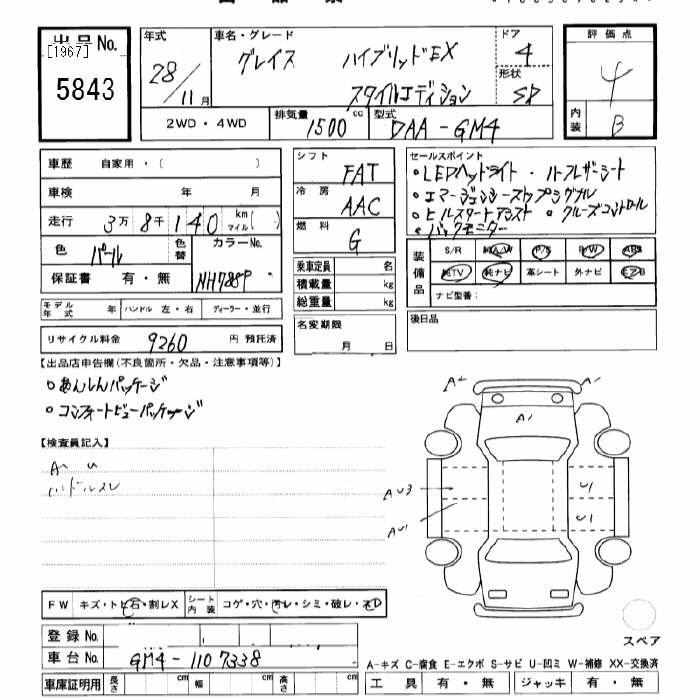 出品No.
[1967]
5843
年式
28/11月
車名・グレード
グレイス ハイブリッドEX
スタイルエディション
ドア
4
形状
SD
評価点
4
内装
B
2WD・4WD
排気量 1500 cc
型式 DAA-GM4
車歴 自家用・( )
車検 年 月
走行 3万8千140 km マイル( )
色 パール 色替 カラーNo. NH788P
保証書 有・無
シフト FAT
冷房 AAC
燃料 G
乗車定員 名
積載量 kg
総重量 kg
セールスポイント
・LEDヘッドライト・ハーフレザーシート
・エマージェンシーストップシグナル
・ヒルスタートアシスト・クルーズコントロール
・バックモニター
装備品
S/R 純A/W P/S P/W ABS
純TV 純ナビ 革シート 外ナビ エアB
ナビ型番:
モデル年式 年 ハンドル 左・右 ディーラー・並行
リサイクル料金 9260 円 預託済
名変期限
月 日
後日品
【出品店申告欄(不良箇所・欠品・注意事項等)】
・あんしんパッケージ
・コンフォートビューパッケージ
【検査員記入】
A~ U
ハンドルスレ
A2 A1
A1
AU3 U1
AU1 U1
FW キズ・トビ石・割レX
シート内装 コゲ・穴・汚レ・シミ・破レ・スレ
登録No.
車台No. GM4-1107338
スペア
A-キズ C-腐食 E-エクボ S-サビ U-凹ミ W-補修 XX-交換済
車庫証明用 長さ cm 幅 cm 高さ cm
工具 有・無 ジャッキ 有・無